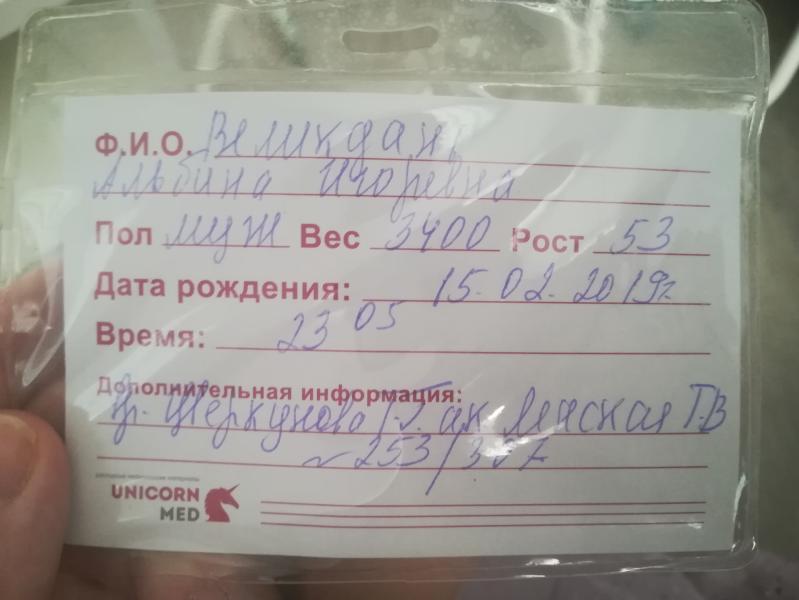 Ф.И.О. Великдань
Альбина Игоревна
Пол муж Вес 3400 Рост 53
Дата рождения: 15.02.2019г.
Время: 23 05
Дополнительная информация:
Г.В
253/357
UNICORN
MED